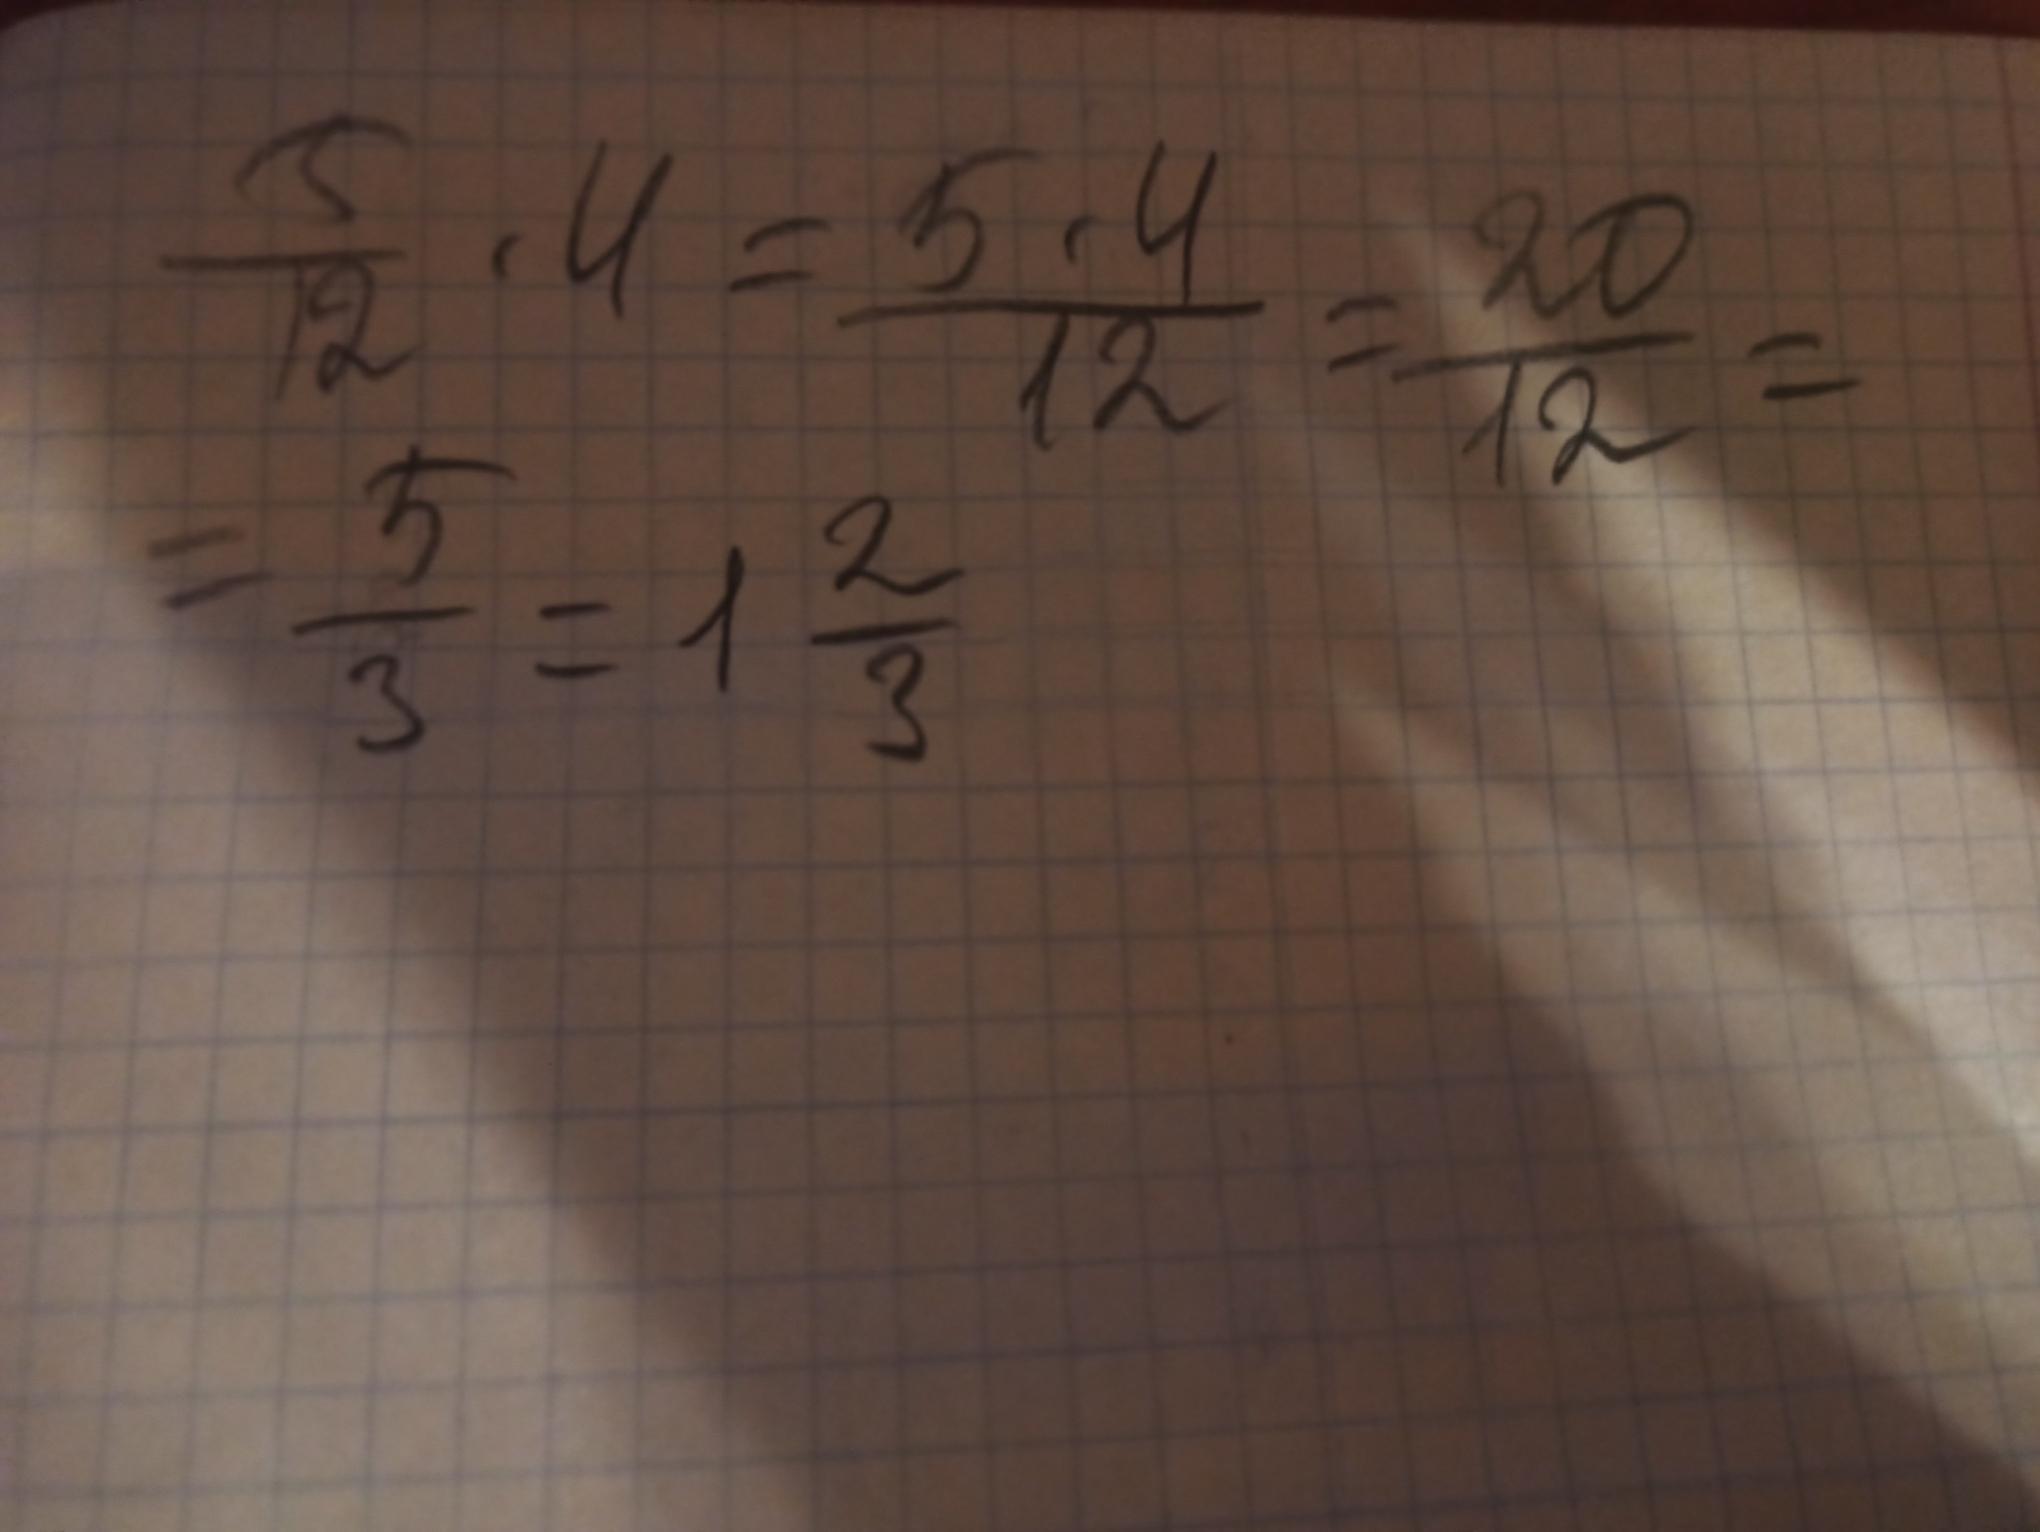 5/12 · 4 = 5 · 4/12 = 20/12 =
= 5/3 = 1 2/3